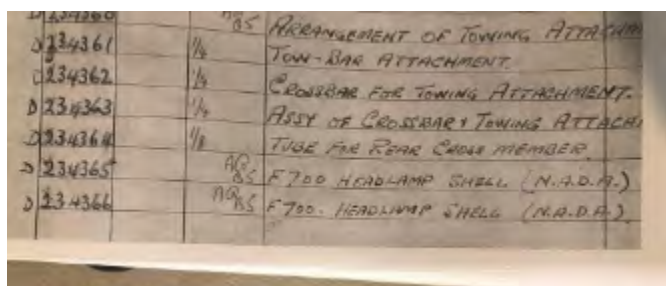 D 234360 AQ BS ARRANGEMENT OF TOWING
D 234361 1/4 TOW-BAR ATTACHMENT.
D 234362 1/4 CROSSBAR FOR TOWING ATTACHMENT.
D 234363 1/4 ASSY OF CROSSBAR & TOWING
D 234364 1/8 TUBE FOR REAR CROSS MEMBER.
D 234365 AQ BS F700 HEADLAMP SHELL (N.A.D.A.)
D 234366 AQ BS F700. HEADLAMP SHELL (N.A.D.A.)